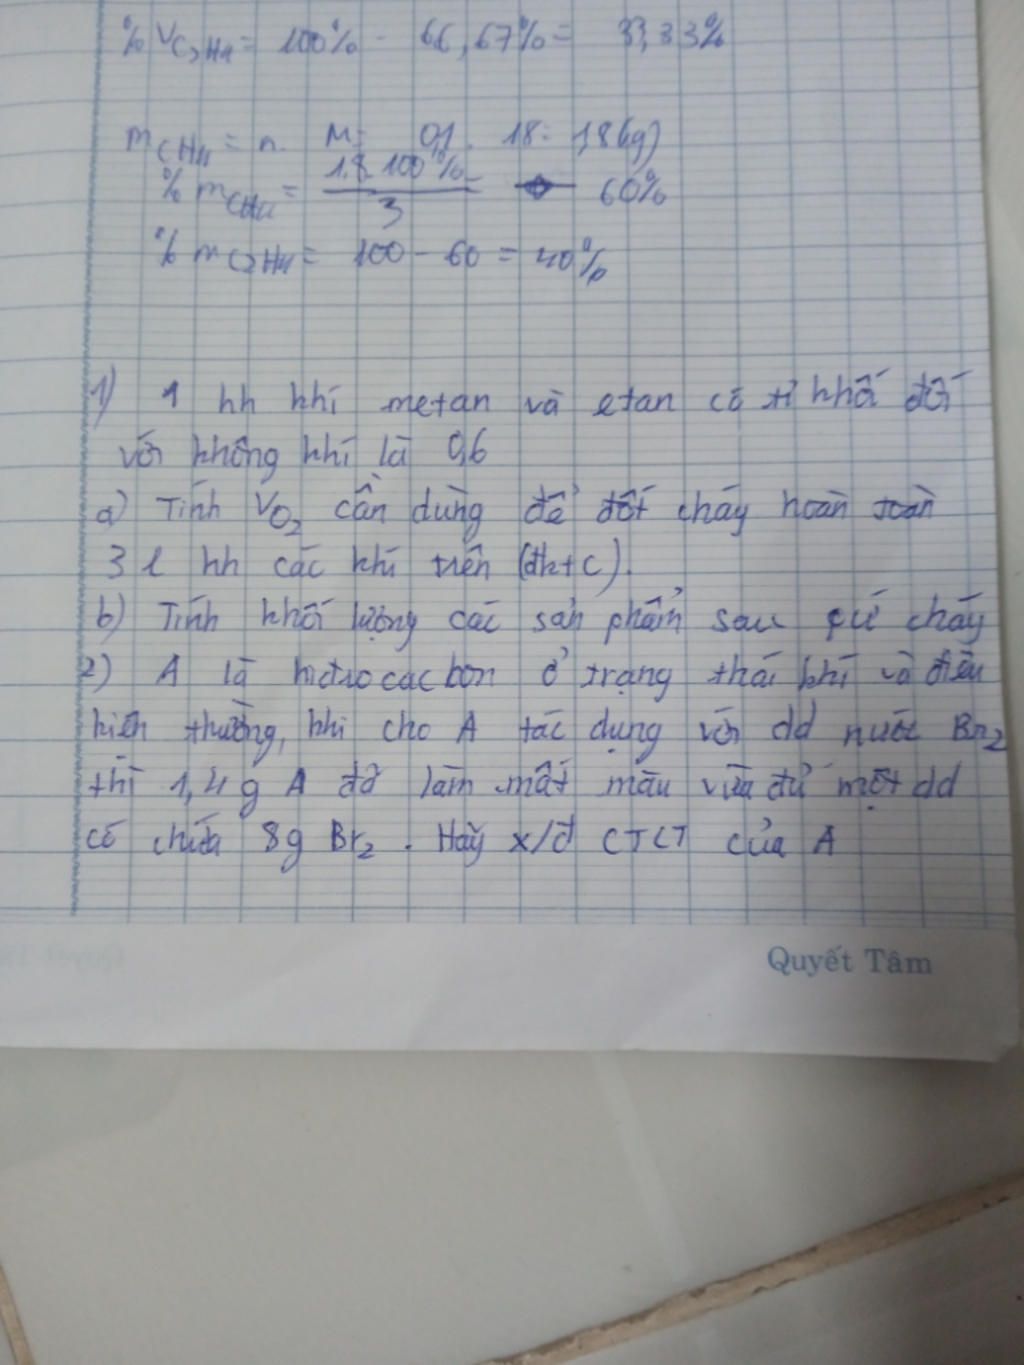 % V C2H4 = 100% - 66,67% = 33,33%
mCH4 = n. M = 0,1. 18 = 1,8(g)
% mCH4 = 1,8.100% / 3 = 60%
% mC2H4 = 100 - 60 = 40%
1) 1 hh khí metan và etan có tỉ khối đối
với không khí là 0,6
a) Tính VO2 cần dùng để đốt cháy hoàn toàn
3 l hh các khí trên (đktc).
b) Tính khối lượng các sản phẩm sau pứ cháy
2) A là hiđrocacbon ở trạng thái khí và điều
kiện thường, khi cho A tác dụng với dd nước Br2
thì 1,4 g A đã làm mất màu vừa đủ một dd
có chứa 8g Br2. Hãy x/đ CTCT của A
Quyết Tâm